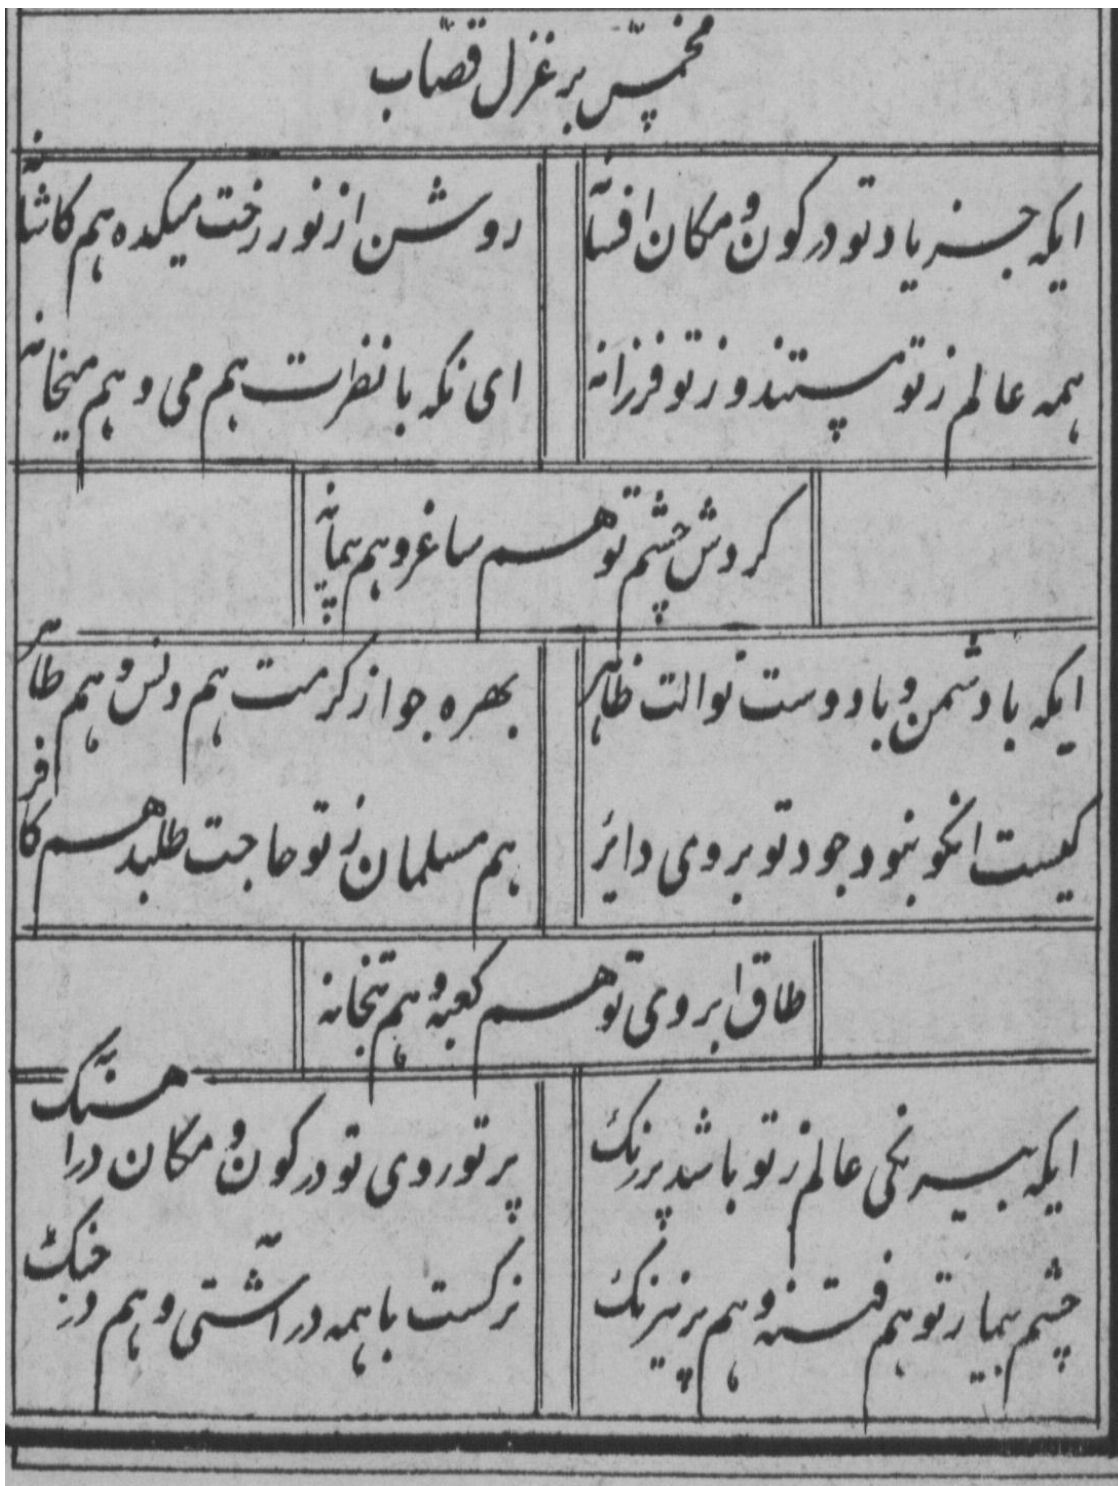 مخمس بر غزل قصاب
ایکه جز یاد تو در کون و مکان افسانه
روشن از نور رخت میکده هم کاشانه
همه عالم ز تو مستند و ز تو فرزانه
ای نکه با نظرت هم می و هم میخانه
کردش چشم تو هم ساغر و هم پیمانه
ایکه با دشمن و با دوست نوالت ظاهر
بهره جو از کرمت هم دنس و هم طاهر
کیست انکو نبود جود تو بروی دایر
هم مسلمان ز تو حاجت طلبد هم کافر
طاق ابروی تو هم کعبه و هم بتخانه
ایکه بیرنکی عالم ز تو باشد پر رنک
پرتو روی تو در کون و مکان در اهنک
چشم بیمار تو هم فتنه و هم پر نیرنک
نرکست با همه در آشتی و هم در جنک